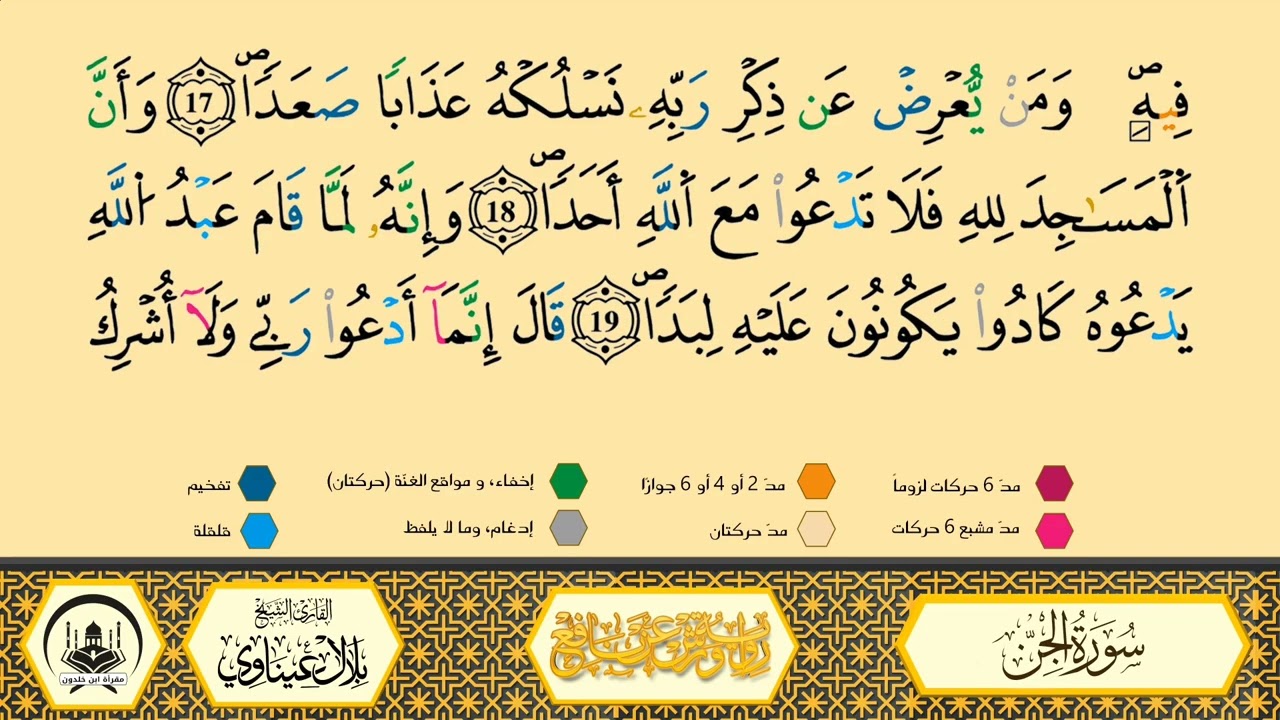 فِيهِۖ وَمَنْ يُّعْرِضْ عَن ذِكْرِ رَبِّهِۦ نَسْلُكْهُ عَذَابًا صَعَدًاۖ 17 وَأَنَّ
اَ۬لْمَسَٰجِدَ لِلهِ فَلَا تَدْعُواْ مَعَ اَ۬للَّهِ أَحَدًاۖ 18 وَإِنَّهُۥ لَمَّا قَامَ عَبْدُ اُ۬للَّهِ
يَدْعُوهُ كَادُواْ يَكُونُونَ عَلَيْهِ لِبَدًاۖ 19 قَالَ إِنَّمَآ أَدْعُواْ رَبِّے وَلَآ أُشْرِكُ
مدّ 6 حركات لزوماً مدّ 2 أو 4 أو 6 جوازًا إخفاء، و مواقع الغنّة (حركتان) تفخيم
مدّ مشبع 6 حركات مدّ حركتان إدغام، وما لا يلفظ قلقلة
سُورَةُ الجِنّ
رواية ورش عن نافع
القارئ الشيخ
بلال عيناوي
مقرأة ابن خلدون